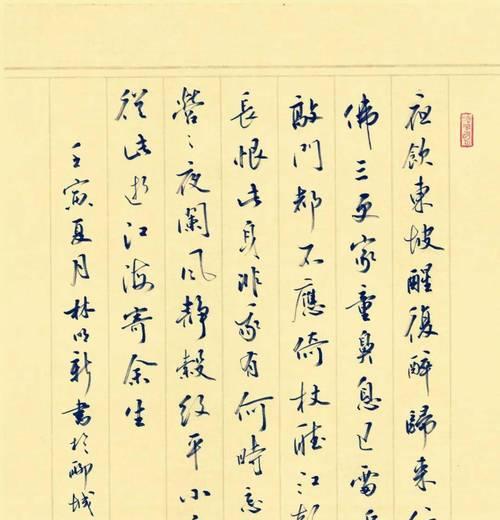 夜飲東坡醒復醉歸來
佛三更家童鼻息已雷
敲門都不應倚杖聽江
長恨此身非我有何時忘
營〻夜闌風靜縠紋平小
從此逝江海寄余生
壬寅夏月林新書於聊城